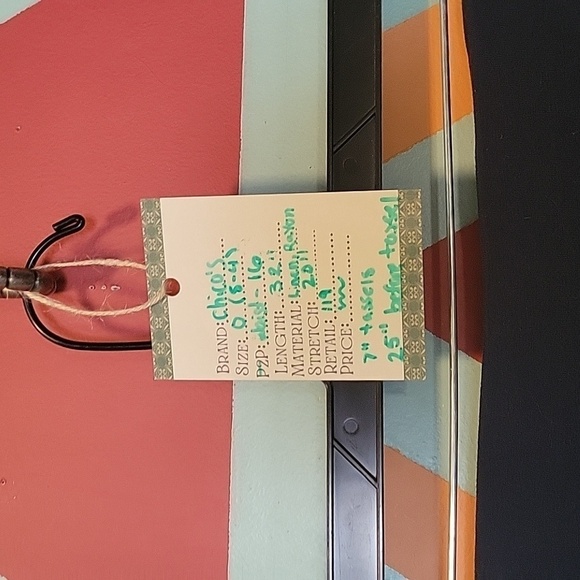 BRAND: chico's
SIZE: 0 (s-4)
P2P: 16
LENGTH: 32"
MATERIAL: Rayon
STRETCH: 20"
RETAIL: 119
PRICE:
7" tassels
25" before tassel